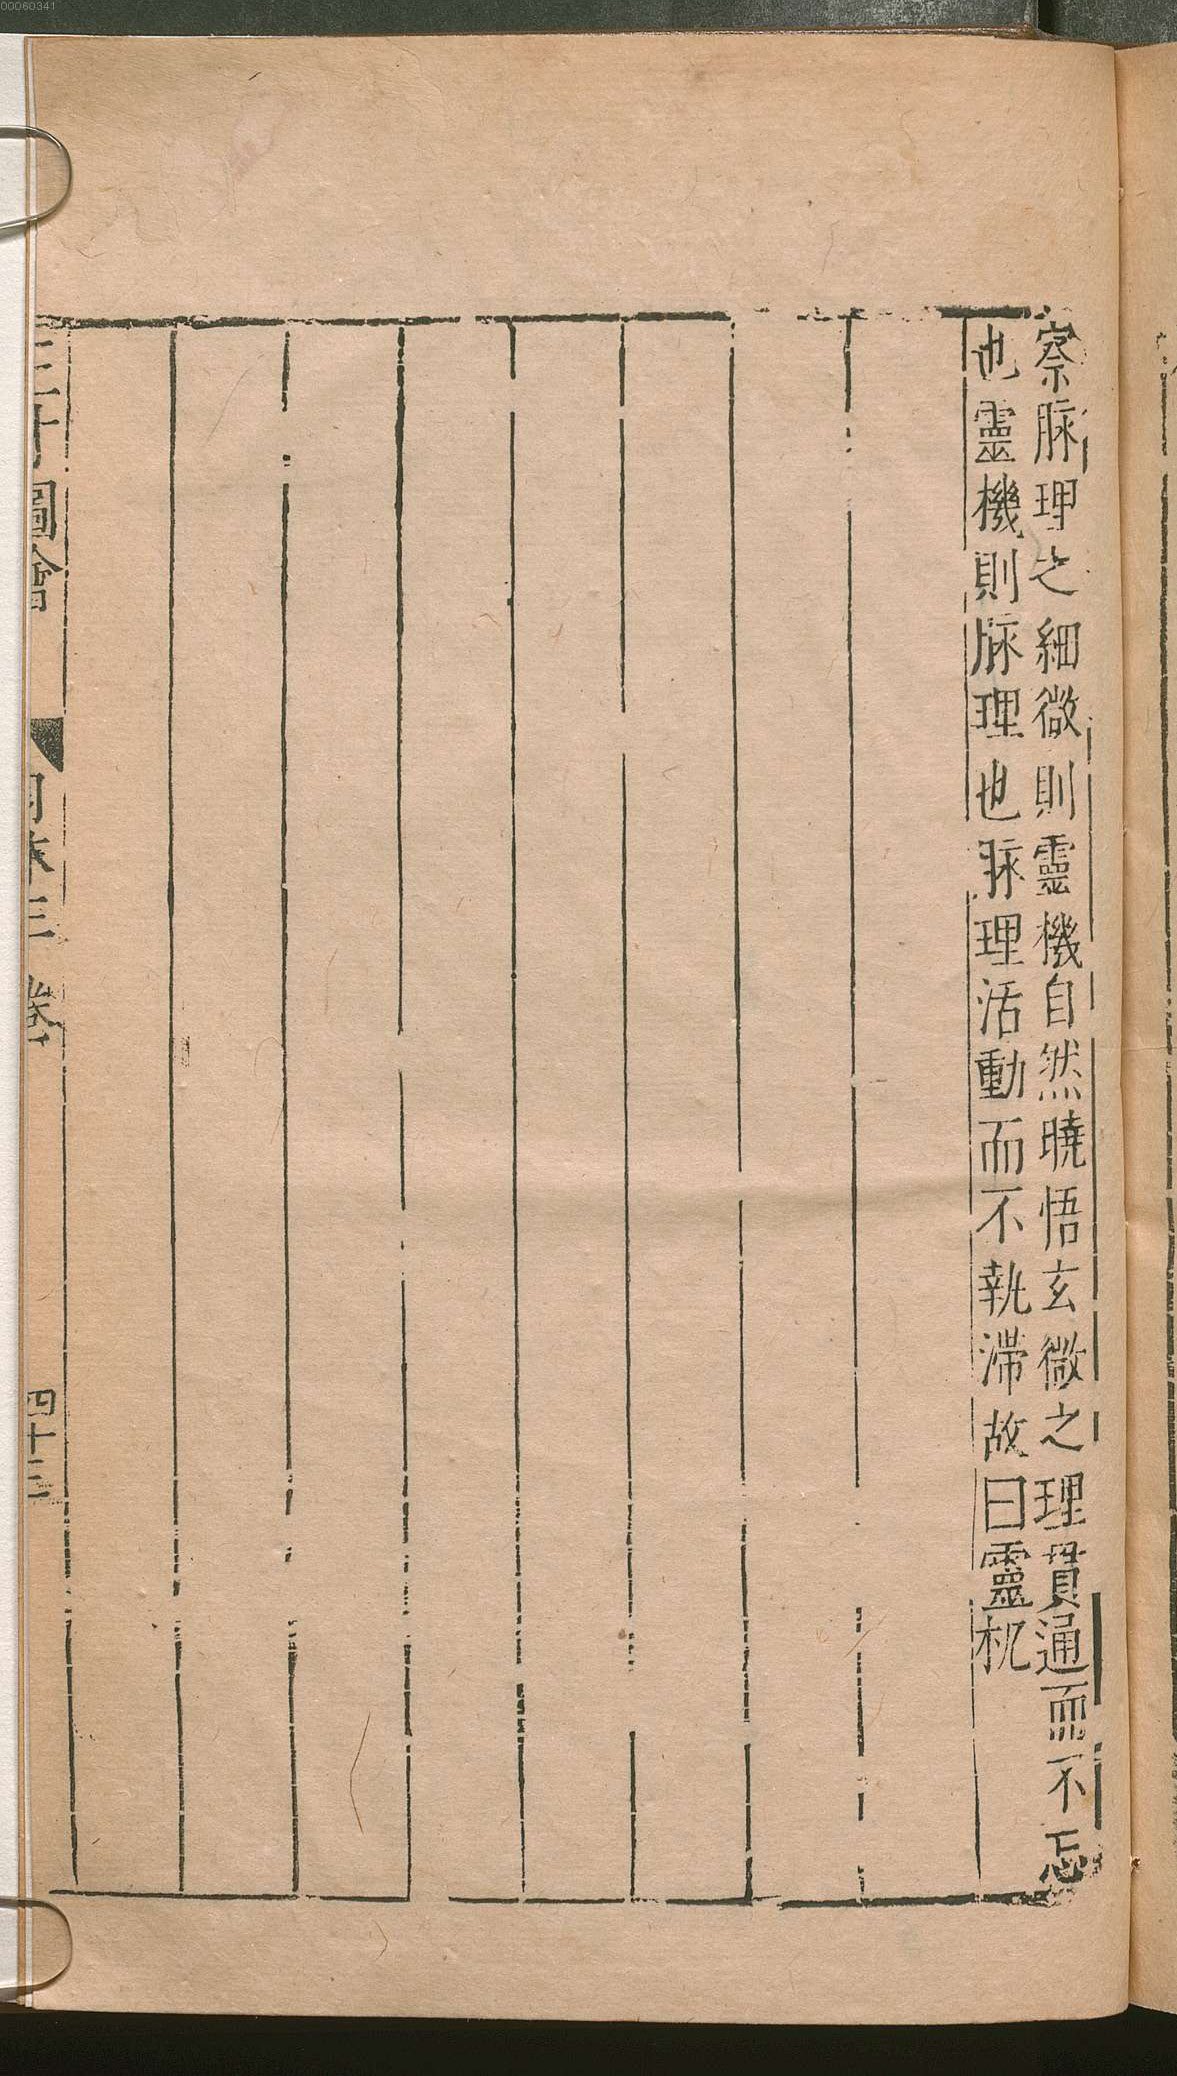 察脉理之細微則靈機自然曉悟玄微之理貫通而不忘
也靈機則脉理也脉理活動而不執滯故曰靈机
三才圖會
身体三卷
四十三
00060341